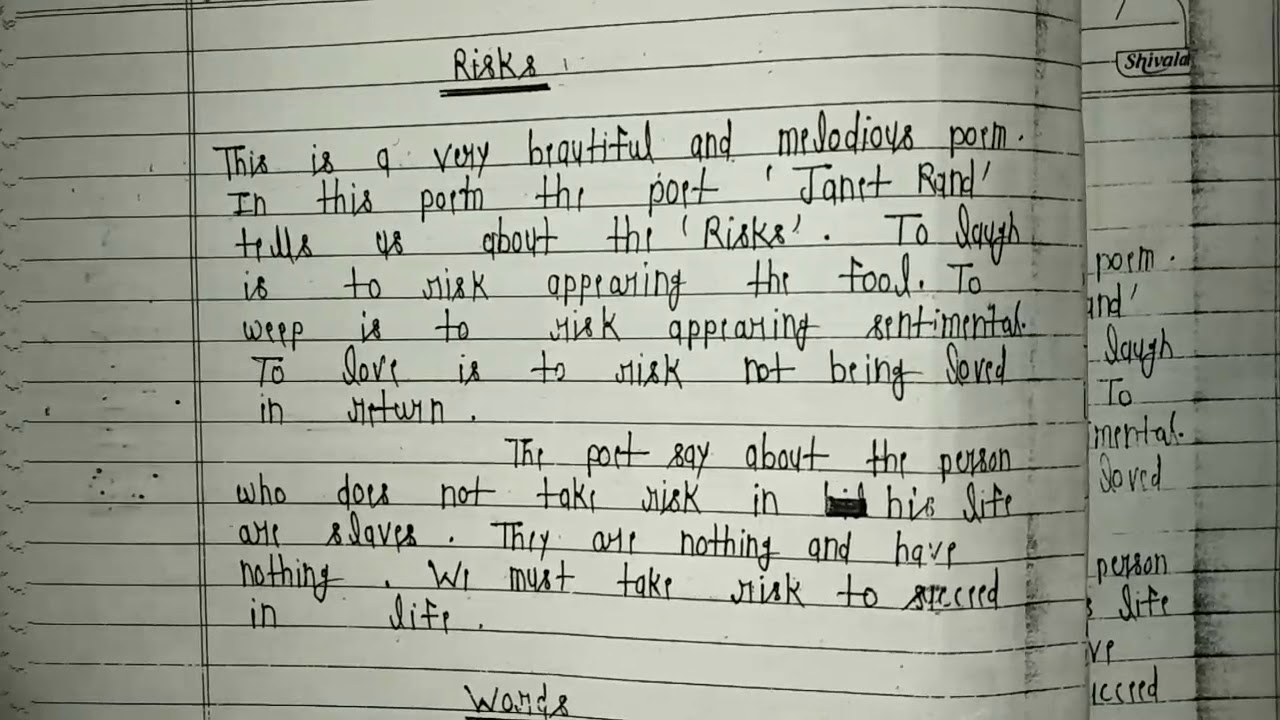 Risks
This is a very beautiful and melodious poem.
In this poem the poet 'Janet Rand'
tells us about the 'Risks'. To laugh
is to risk appearing the fool. To
weep is to risk appearing sentimental.
To love is to risk not being loved
in return.
The poet say about the person
who does not take risk in his life
are slaves. They are nothing and have
nothing. We must take risk to succeed
in life.
Words
Shivalal
poem.
and'
laugh
To
imental.
loved
person
s life
ve
ucceed